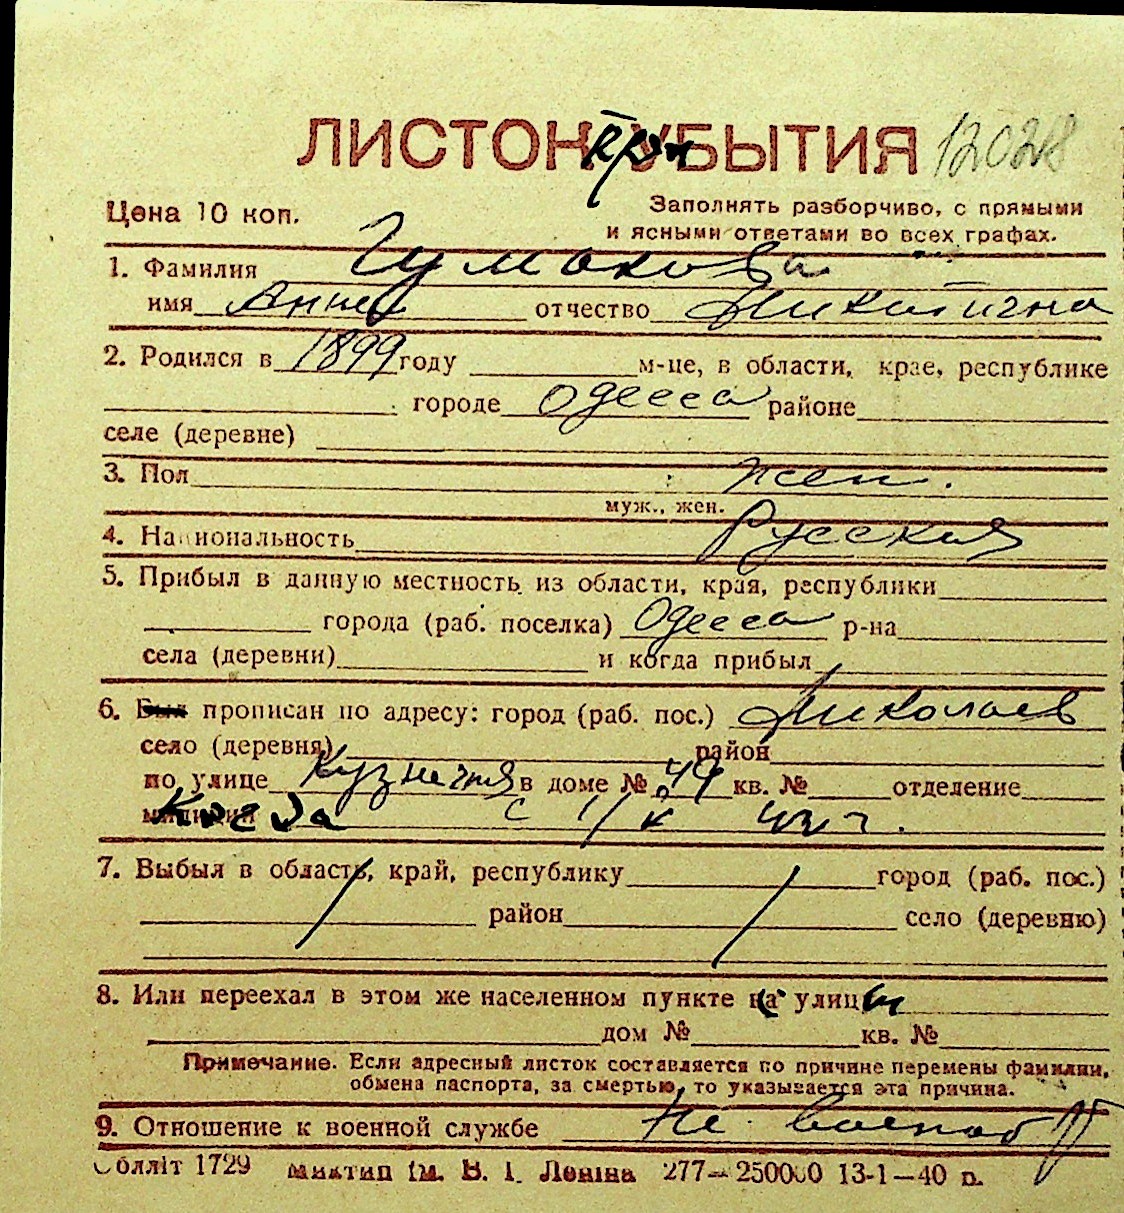 ЛИСТОК УБЫТИЯ 12028
Цена 10 коп.
Заполнять разборчиво, с прямыми
и ясными ответами во всех графах.
1. Фамилия Чумакова
имя Анна отчество Никитична
2. Родился в 1899 году м-це, в области, крае, республике
городе Одесса районе
селе (деревне)
3. Пол жен.
муж., жен.
4. Национальность Русская
5. Прибыл в данную местность из области, края, республики
города (раб. поселка) Одесса р-на
села (деревни) и когда прибыл
6. Был прописан по адресу: город (раб. пос.) Николаев
село (деревня) район
по улице Кузнечная в доме № 49 кв. № отделение
милиции с
7. Выбыл в область, край, республику город (раб. пос.)
район село (деревню)
8. Или переехал в этом же населенном пункте на улицу
дом № кв. №
Примечание. Если адресный листок составляется по причине перемены фамилии,
обмена паспорта, за смертью, то указывается эта причина.
9. Отношение к военной службе Не военнооб
Облліт 1729 Миктип ім. В. І. Леніна 277—250000 13-1—40 р.